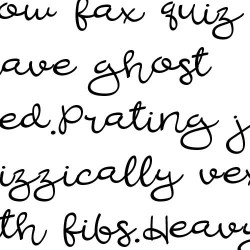 ow fax quiz
ave ghost
ed.Prating j
izzically ves
th fibs.Heavy